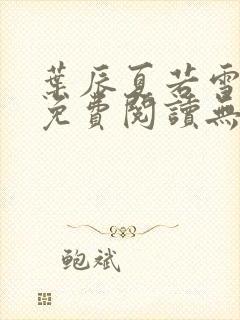 葉辰夏若雪
免費閱讀無
鮑斌